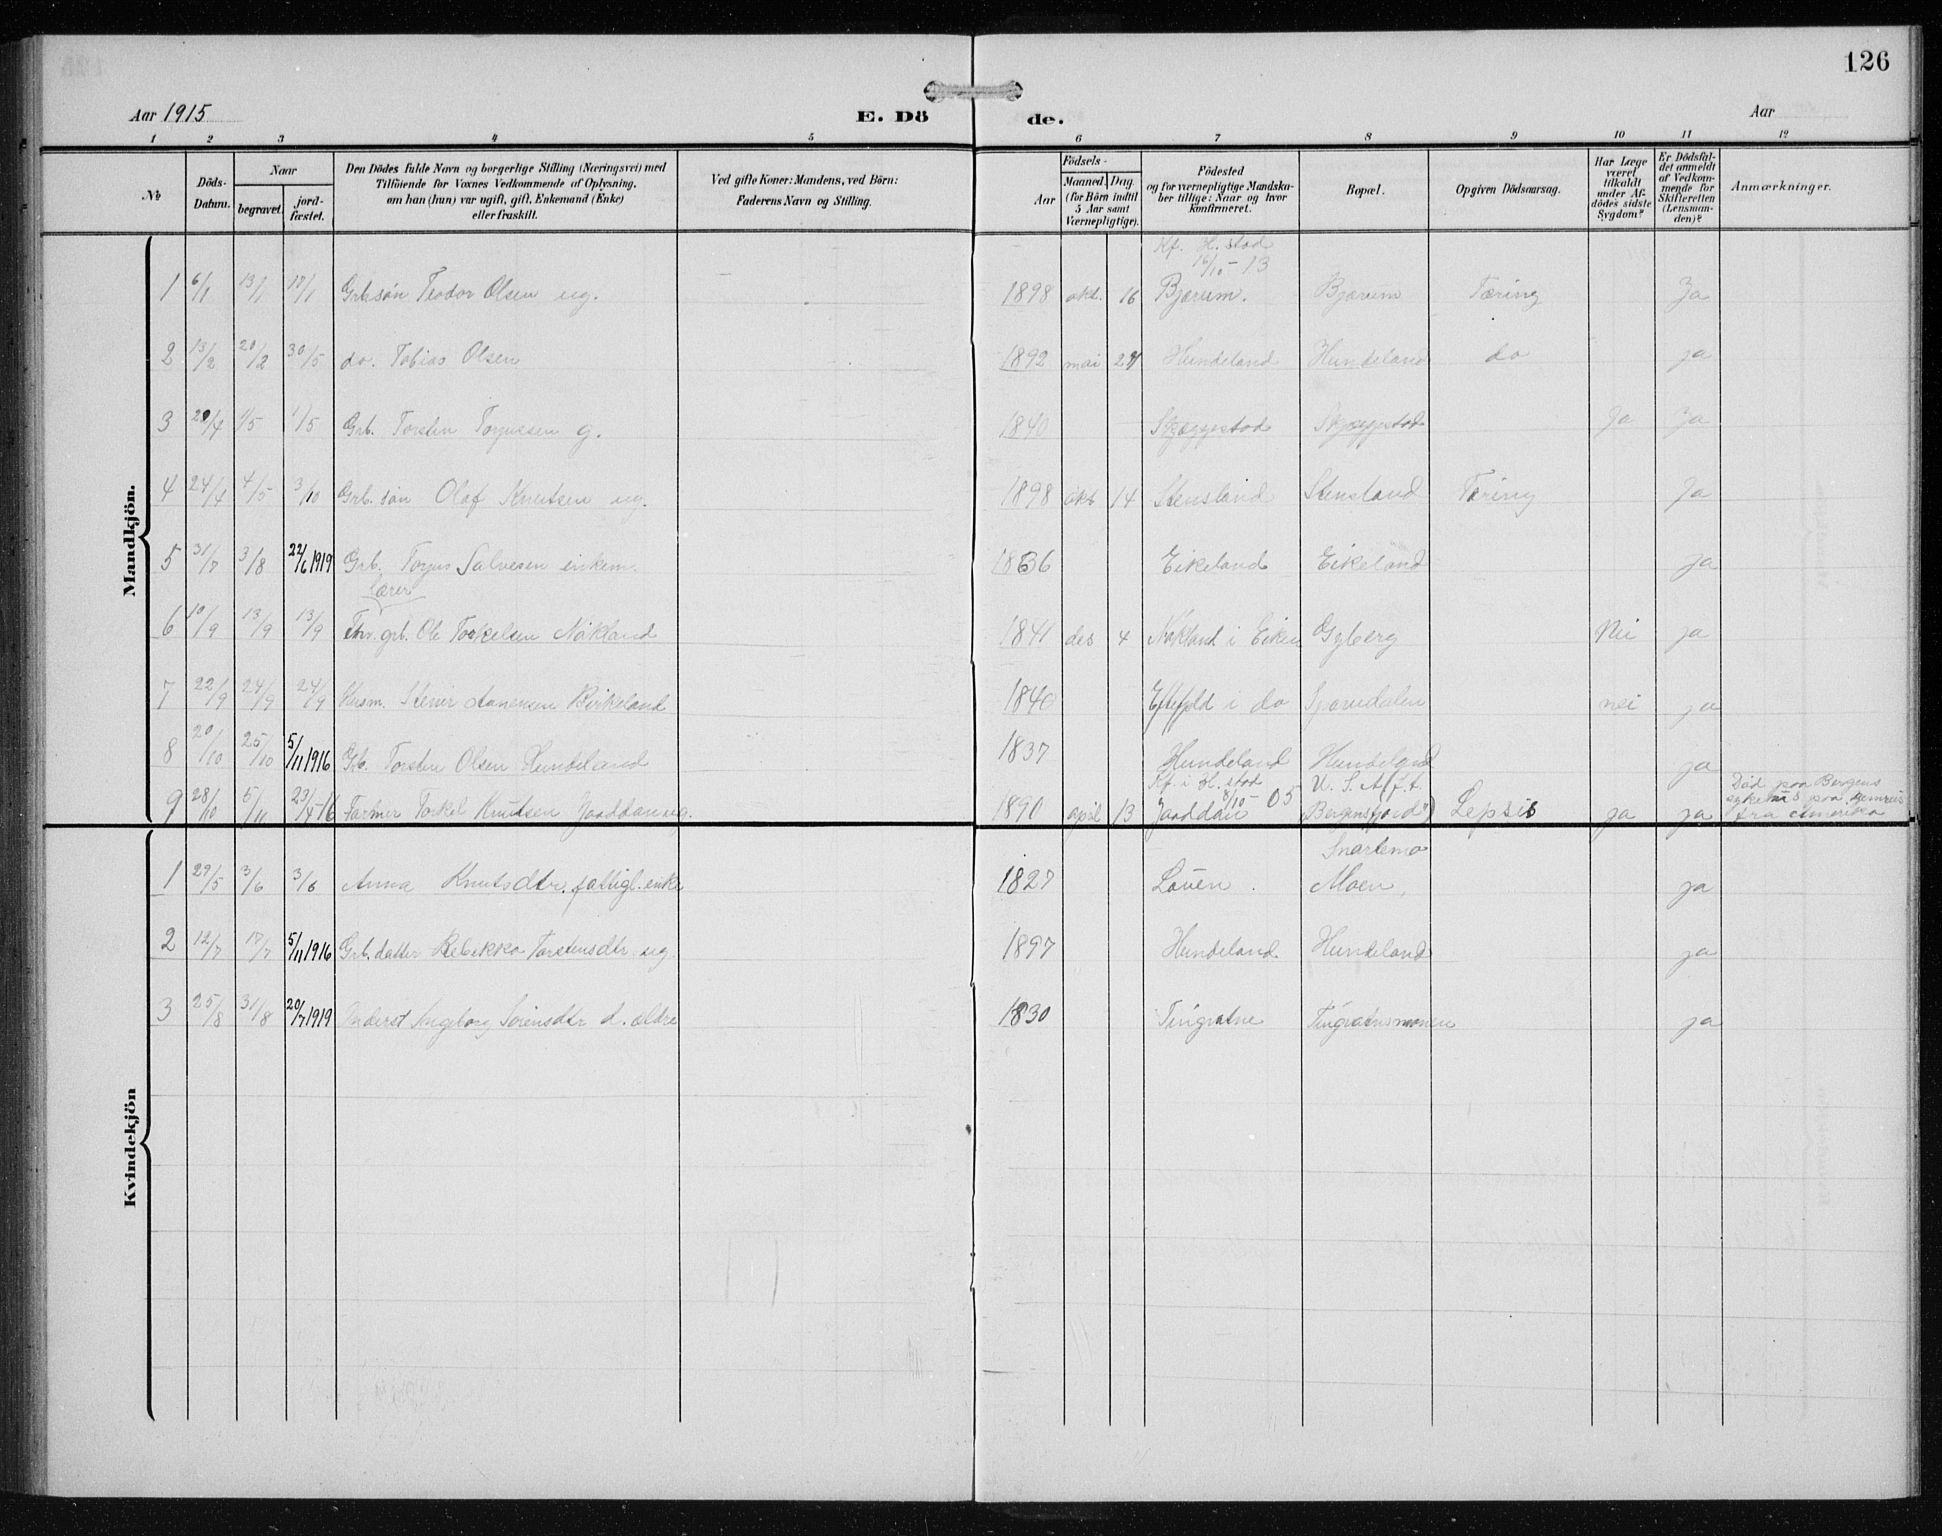 126
Aar 1915
E. Döde.
Aar
1 2 3 4 5 6 7 8 9 10 11 12
No
Döds-Datum.
Naar
begravet.
jord-fæstet.
Den Dödes fulde Navn og borgerlige Stilling (Næringsvei) med
Tilföiende for Voxnes Vedkommende af Oplysning,
om han (hun) var ugift, gift, Enkemand (Enke)
eller fraskilt.
Ved gifte Koner: Mandens, ved Börn:
Faderens Navn og Stilling.
Födsels-
Aar
Maaned. Dag
(for Börn indtil
5 Aar samt
Værnepligtige).
Födested
og for værnepligtige Mandska-
ber tillige: Naar og hvor
konfirmeret.
Bopæl.
Opgiven Dödsaarsag.
Har Læge
været
tilkaldt
under Af-
dödes sidste
Sygdom?
Er Dödsfal-
det anmeldt
af Vedkom-
mende for
Skifteretten
(Lensman-
den)?
Anmærkninger.
Mandkjön.
Kf. H.stad
16/10-13
1 6/1 13/1 17/1 Grb.søn Teodor Olsen ug. 1898 okt. 16 Bjærum. Bjærum Tæring Ja
2 13/2 20/2 30/5 do. Tobias Olsen 1892 mai 24 Hundeland Hundeland do ja
3 20/4 1/5 1/5 Grb. Torsten Torjussen g. 1840 Skjæggestad Skjæggestad Ja Ja
4 24/4 4/5 3/10 Grb. søn Olaf Knutsen ug. 1898 okt 14 Stensland Stensland Tæring Ja
5 31/7 3/8 22/6 1919 Grb. Torjus Salvesen enkem. 1836 Eikeland Eikeland ja
lærer
6 10/9 13/9 13/9 Fhv. grb. Ole Torkelsen Nakland 1841 des 4 Nakland i Eiken Gyberg Nei ja
7 22/9 24/9 24/9 Husm. Stener Aanensen Birkeland 1840 Eftefjeld i do nei ja
8 20/10 25/10 5/11 1916 Grb. Torsten Olsen Hundeland 1837 Hundeland Hundeland ja
Kf. i H.stad 8/10-05 U. S. A.
9 28/10 5/11 23/4-16 Farmer Torkel Knutsen Jaaddan ug. 1890 april 13 Jaaddan Bergensfjord") Lepsis ja ja Død paa Bergens
sykehus paa hjemreis
fra Amerika
Kvindekjön
Snartemo
1 27/5 3/6 3/6 Anna Knutsdtr. fattigl. enke 1827 Lauen. Moen, ja
2 12/7 17/7 5/11 1916 Grb. datter Rebekka Torstensdtr ug. 1897 Hundeland Hundeland ja
3 25/8 31/8 20/7 1919 Underst Ingeborg Sørensdtr d. ældre 1830 Tingvatne Tingvatnsmoen ja